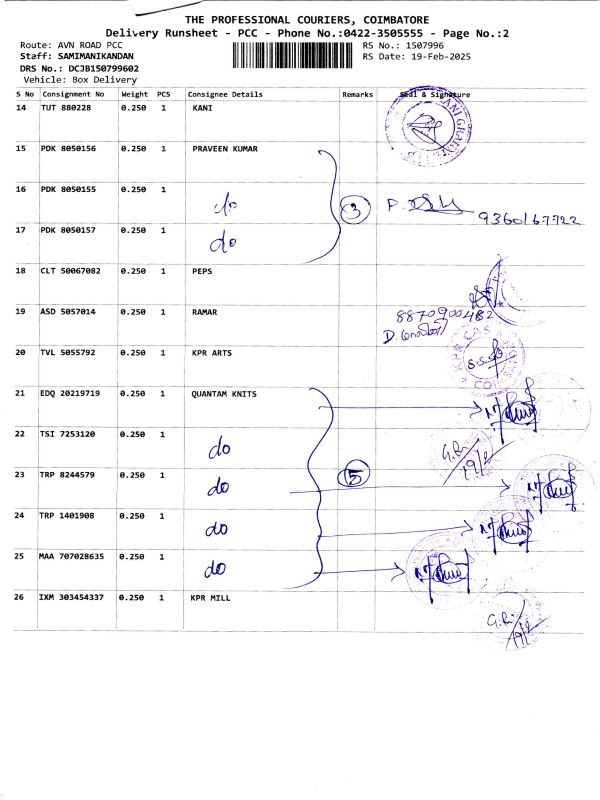 THE PROFESSIONAL COURIERS, COIMBATORE
Delivery Runsheet - PCC - Phone No.:0422-3505555 - Page No.:2
Route: AVN ROAD PCC RS No.: 1507996
Staff: SAMIMANIKANDAN RS Date: 19-Feb-2025
DRS No.: DCJB150799602
Vehicle: Box Delivery
S No Consignment No Weight PCS Consignee Details Remarks Seal & Signature
14 TUT 880228 0.250 1 KANI
15 PDK 8050156 0.250 1 PRAVEEN KUMAR
16 PDK 8050155 0.250 1 do 3 9360167722
17 PDK 8050157 0.250 1 do
18 CLT 50067082 0.250 1 PEPS
19 ASD 5057014 0.250 1 RAMAR 8870900482
20 TVL 5055792 0.250 1 KPR ARTS
21 EDQ 20219719 0.250 1 QUANTAM KNITS
22 TSI 7253120 0.250 1 do G.R 19/2
23 TRP 8244579 0.250 1 do 5
24 TRP 1401908 0.250 1 do
25 MAA 707028635 0.250 1 do
26 IXM 303454337 0.250 1 KPR MILL G.R 19/2